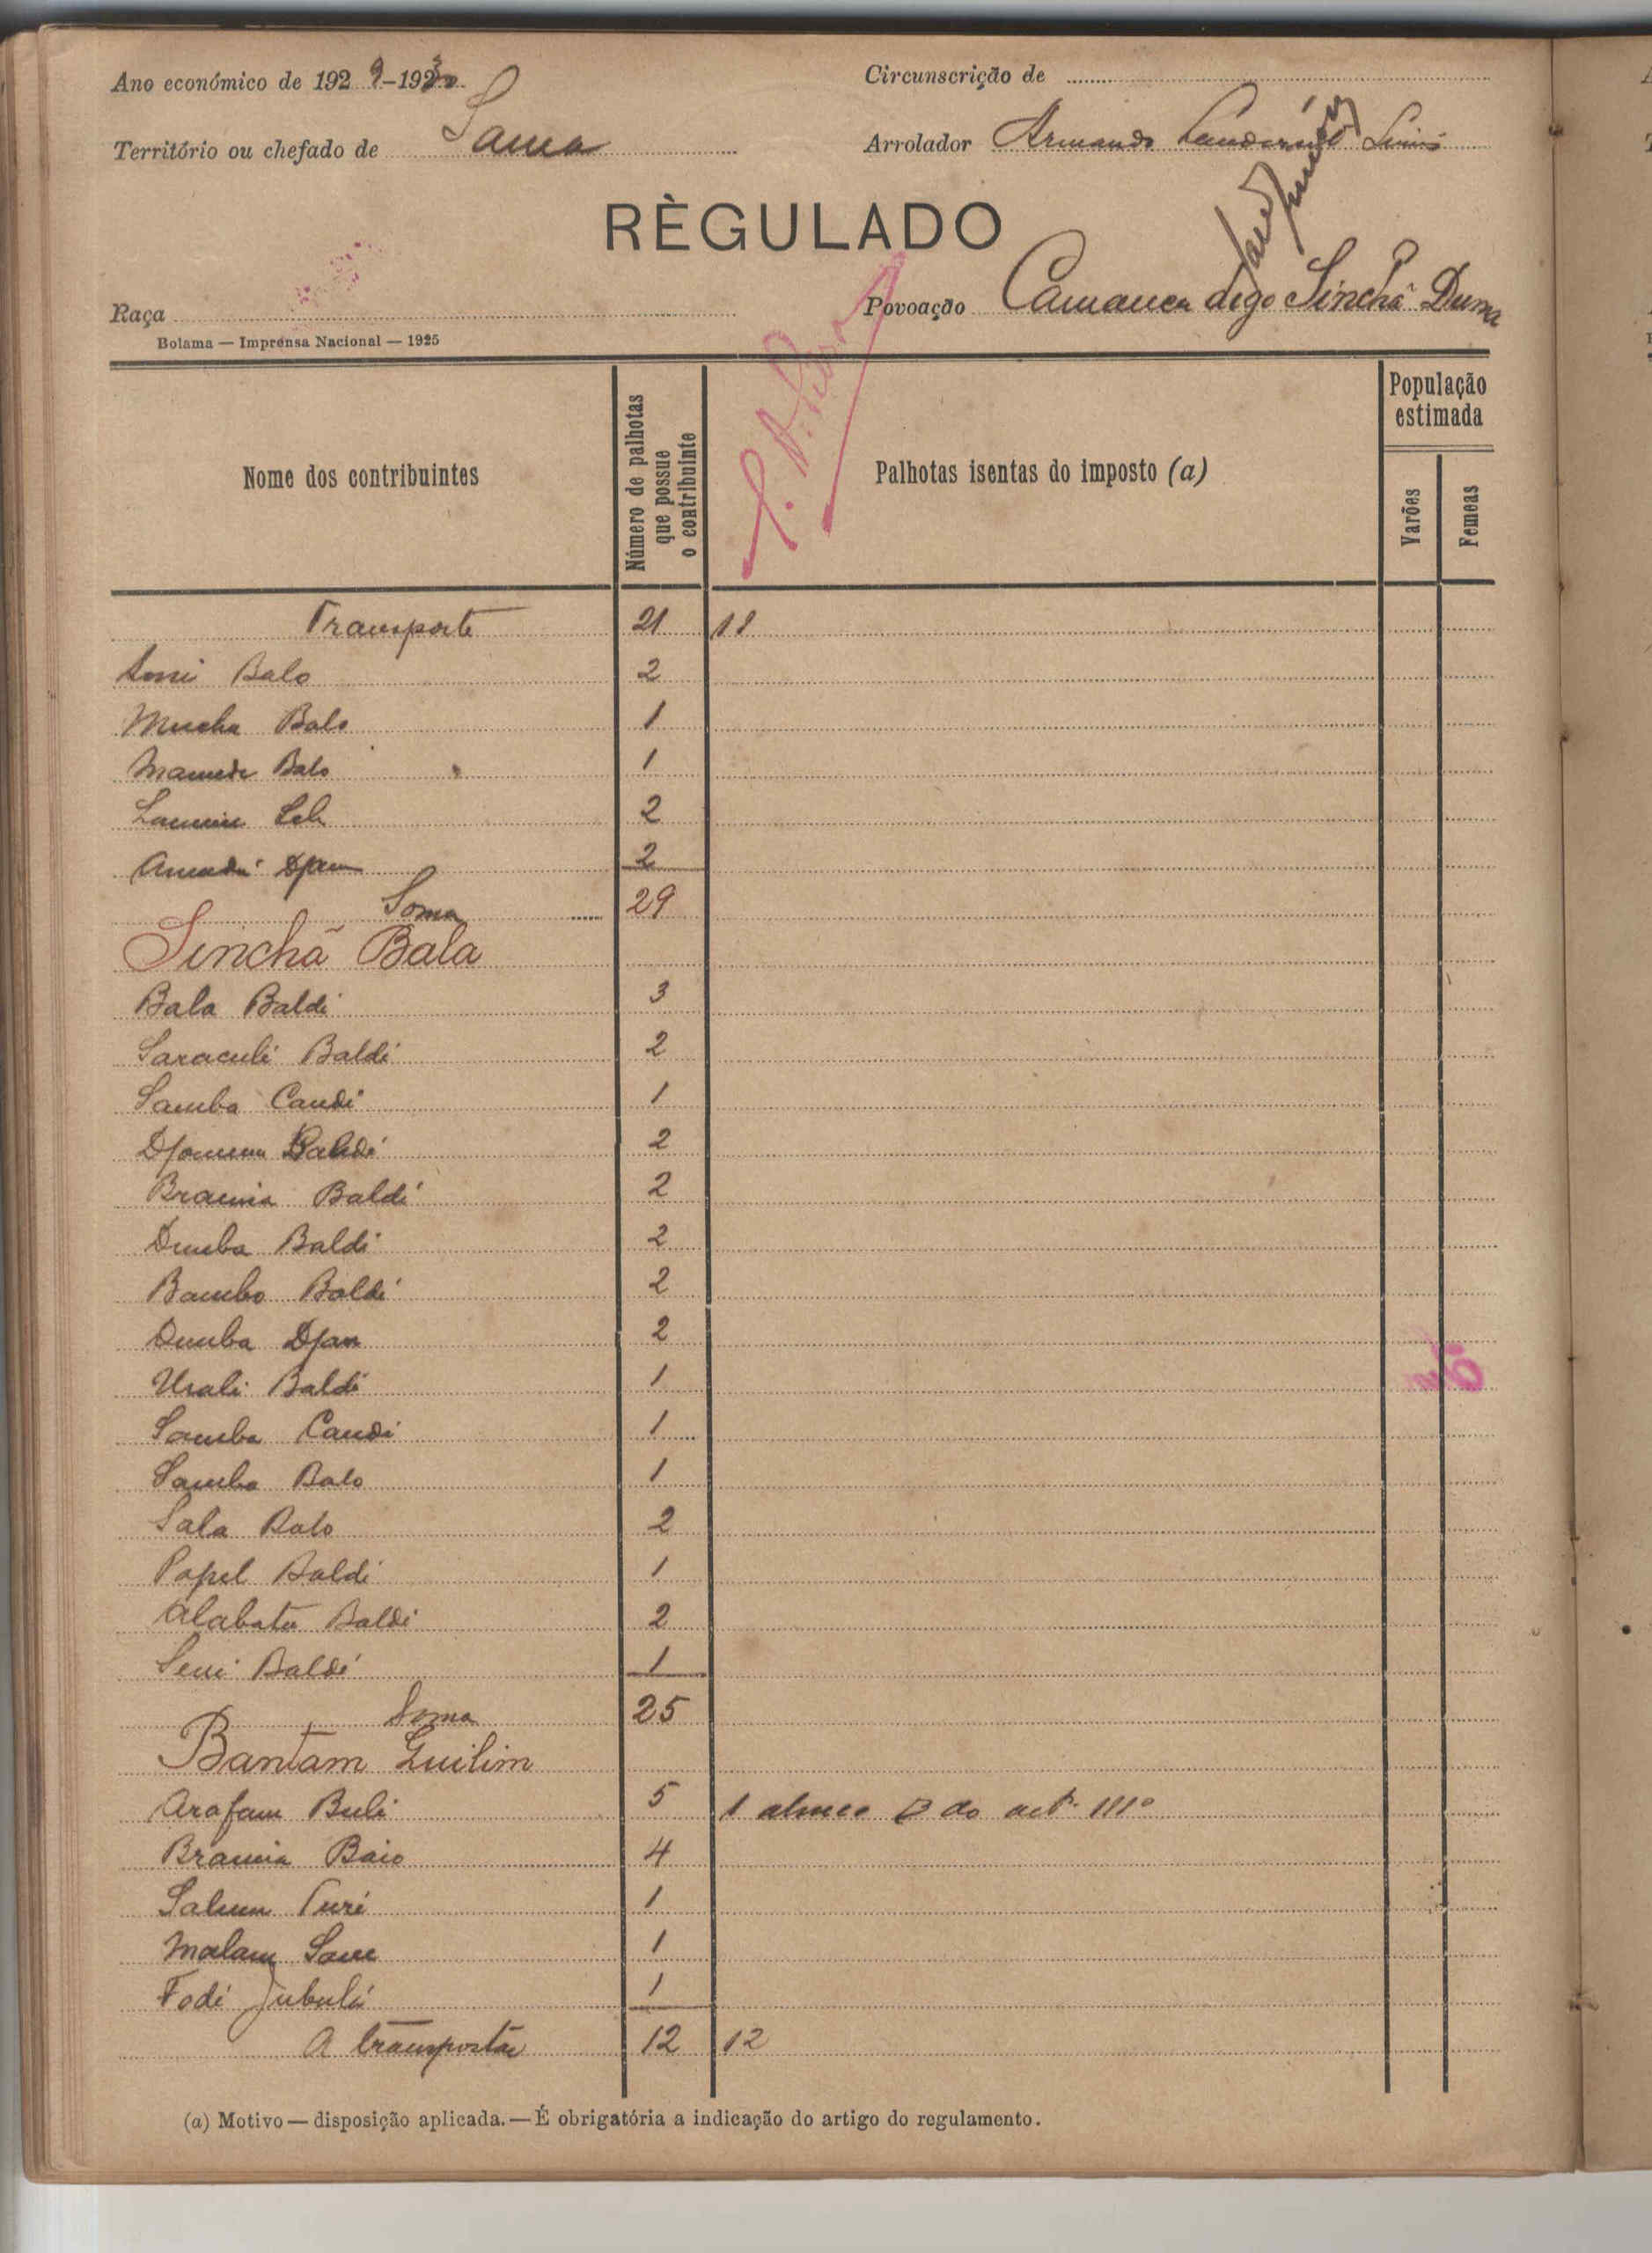 Ano económico de 1929-1930
Circunscrição de
Território ou chefado de Sama
Arrolador Armando
RÈGULADO
Raça
Povoação Camanca digo Sinchã Duma
Bolama — Imprensa Nacional — 1925
Nome dos contribuintes
Número de palhotas que possue o contribuinte
Palhotas isentas do imposto (a)
População estimada
Varões
Femeas
Transporte 21 11
Balo 2
Mucha Balo 1
Mamede Balo 1
Lamine 2
Amadú Djau 2
Soma 29
Sinchã Bala
Bala Baldé 3
Saraculé Baldé 2
Samba Candé 1
Baldé 2
Bramia Baldé 2
Demba Baldé 2
Bambo Baldé 2
Demba Djau 2
Urali Baldé 1
Samba Candé 1
Samba Balo 1
Sala Balo 2
Papel Baldé 1
Alabatu Baldé 2
Seni Baldé 1
Soma 25
Bantam Guilim
Arafam Buli 5 1 do artº 111º
Bramia Baio 4
Salum Turé 1
Malam Sane 1
Fodé Jubulá 1
A transportar 12 12
(a) Motivo — disposição aplicada. — É obrigatória a indicação do artigo do regulamento.